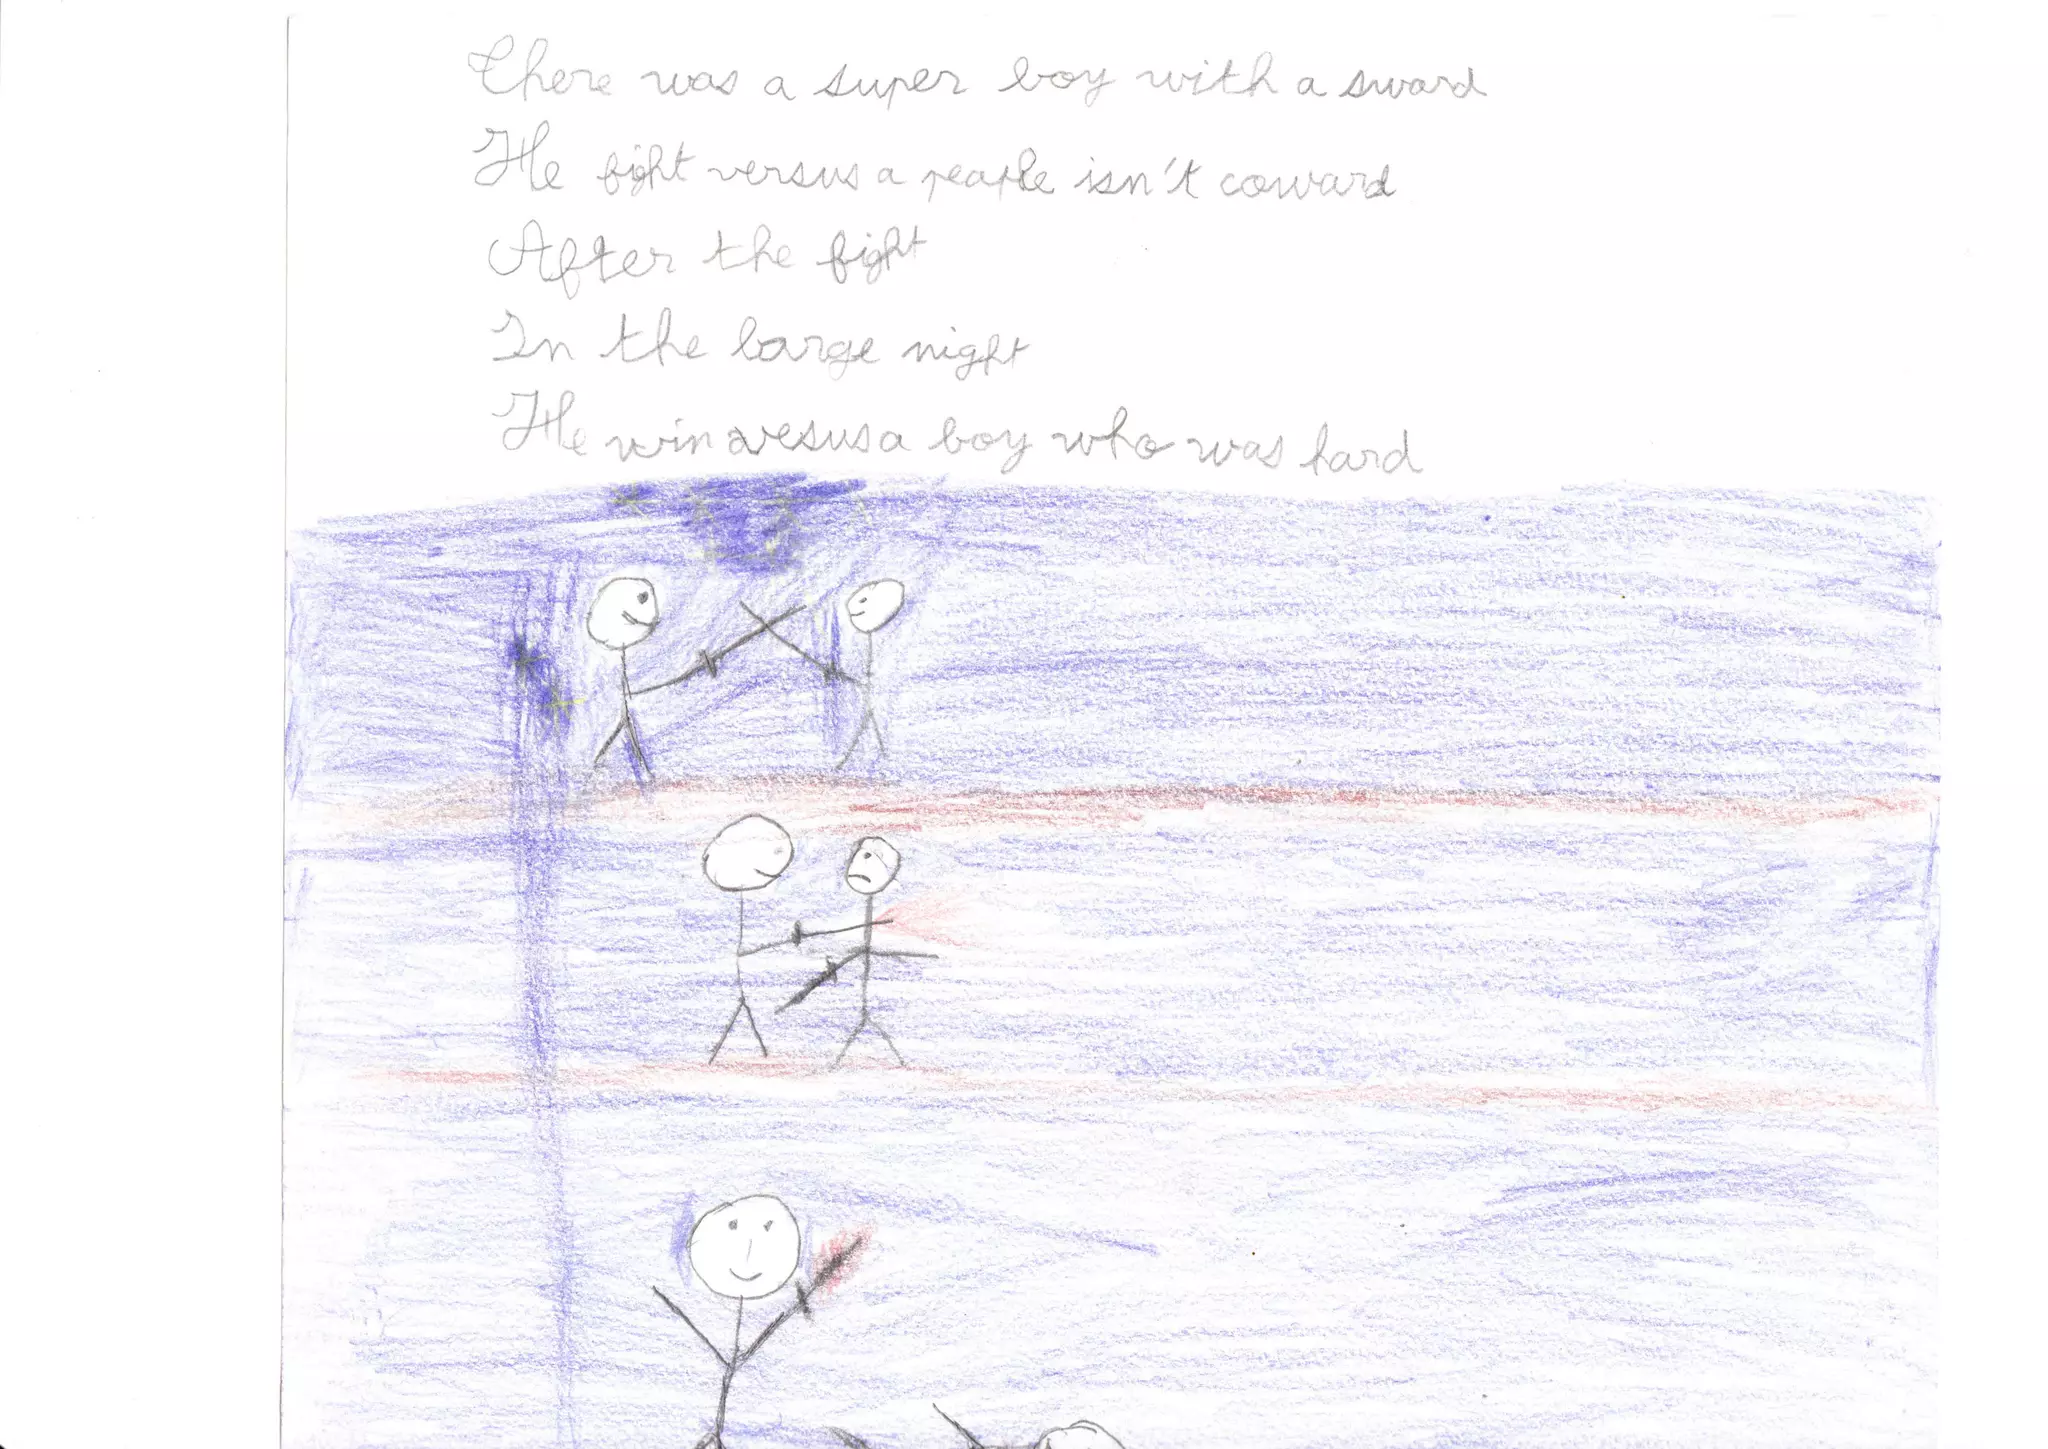 There was a super boy with a sward
He fight versus a peaple isn't coward
After the fight
In the large night
He win vesus a boy who was hard